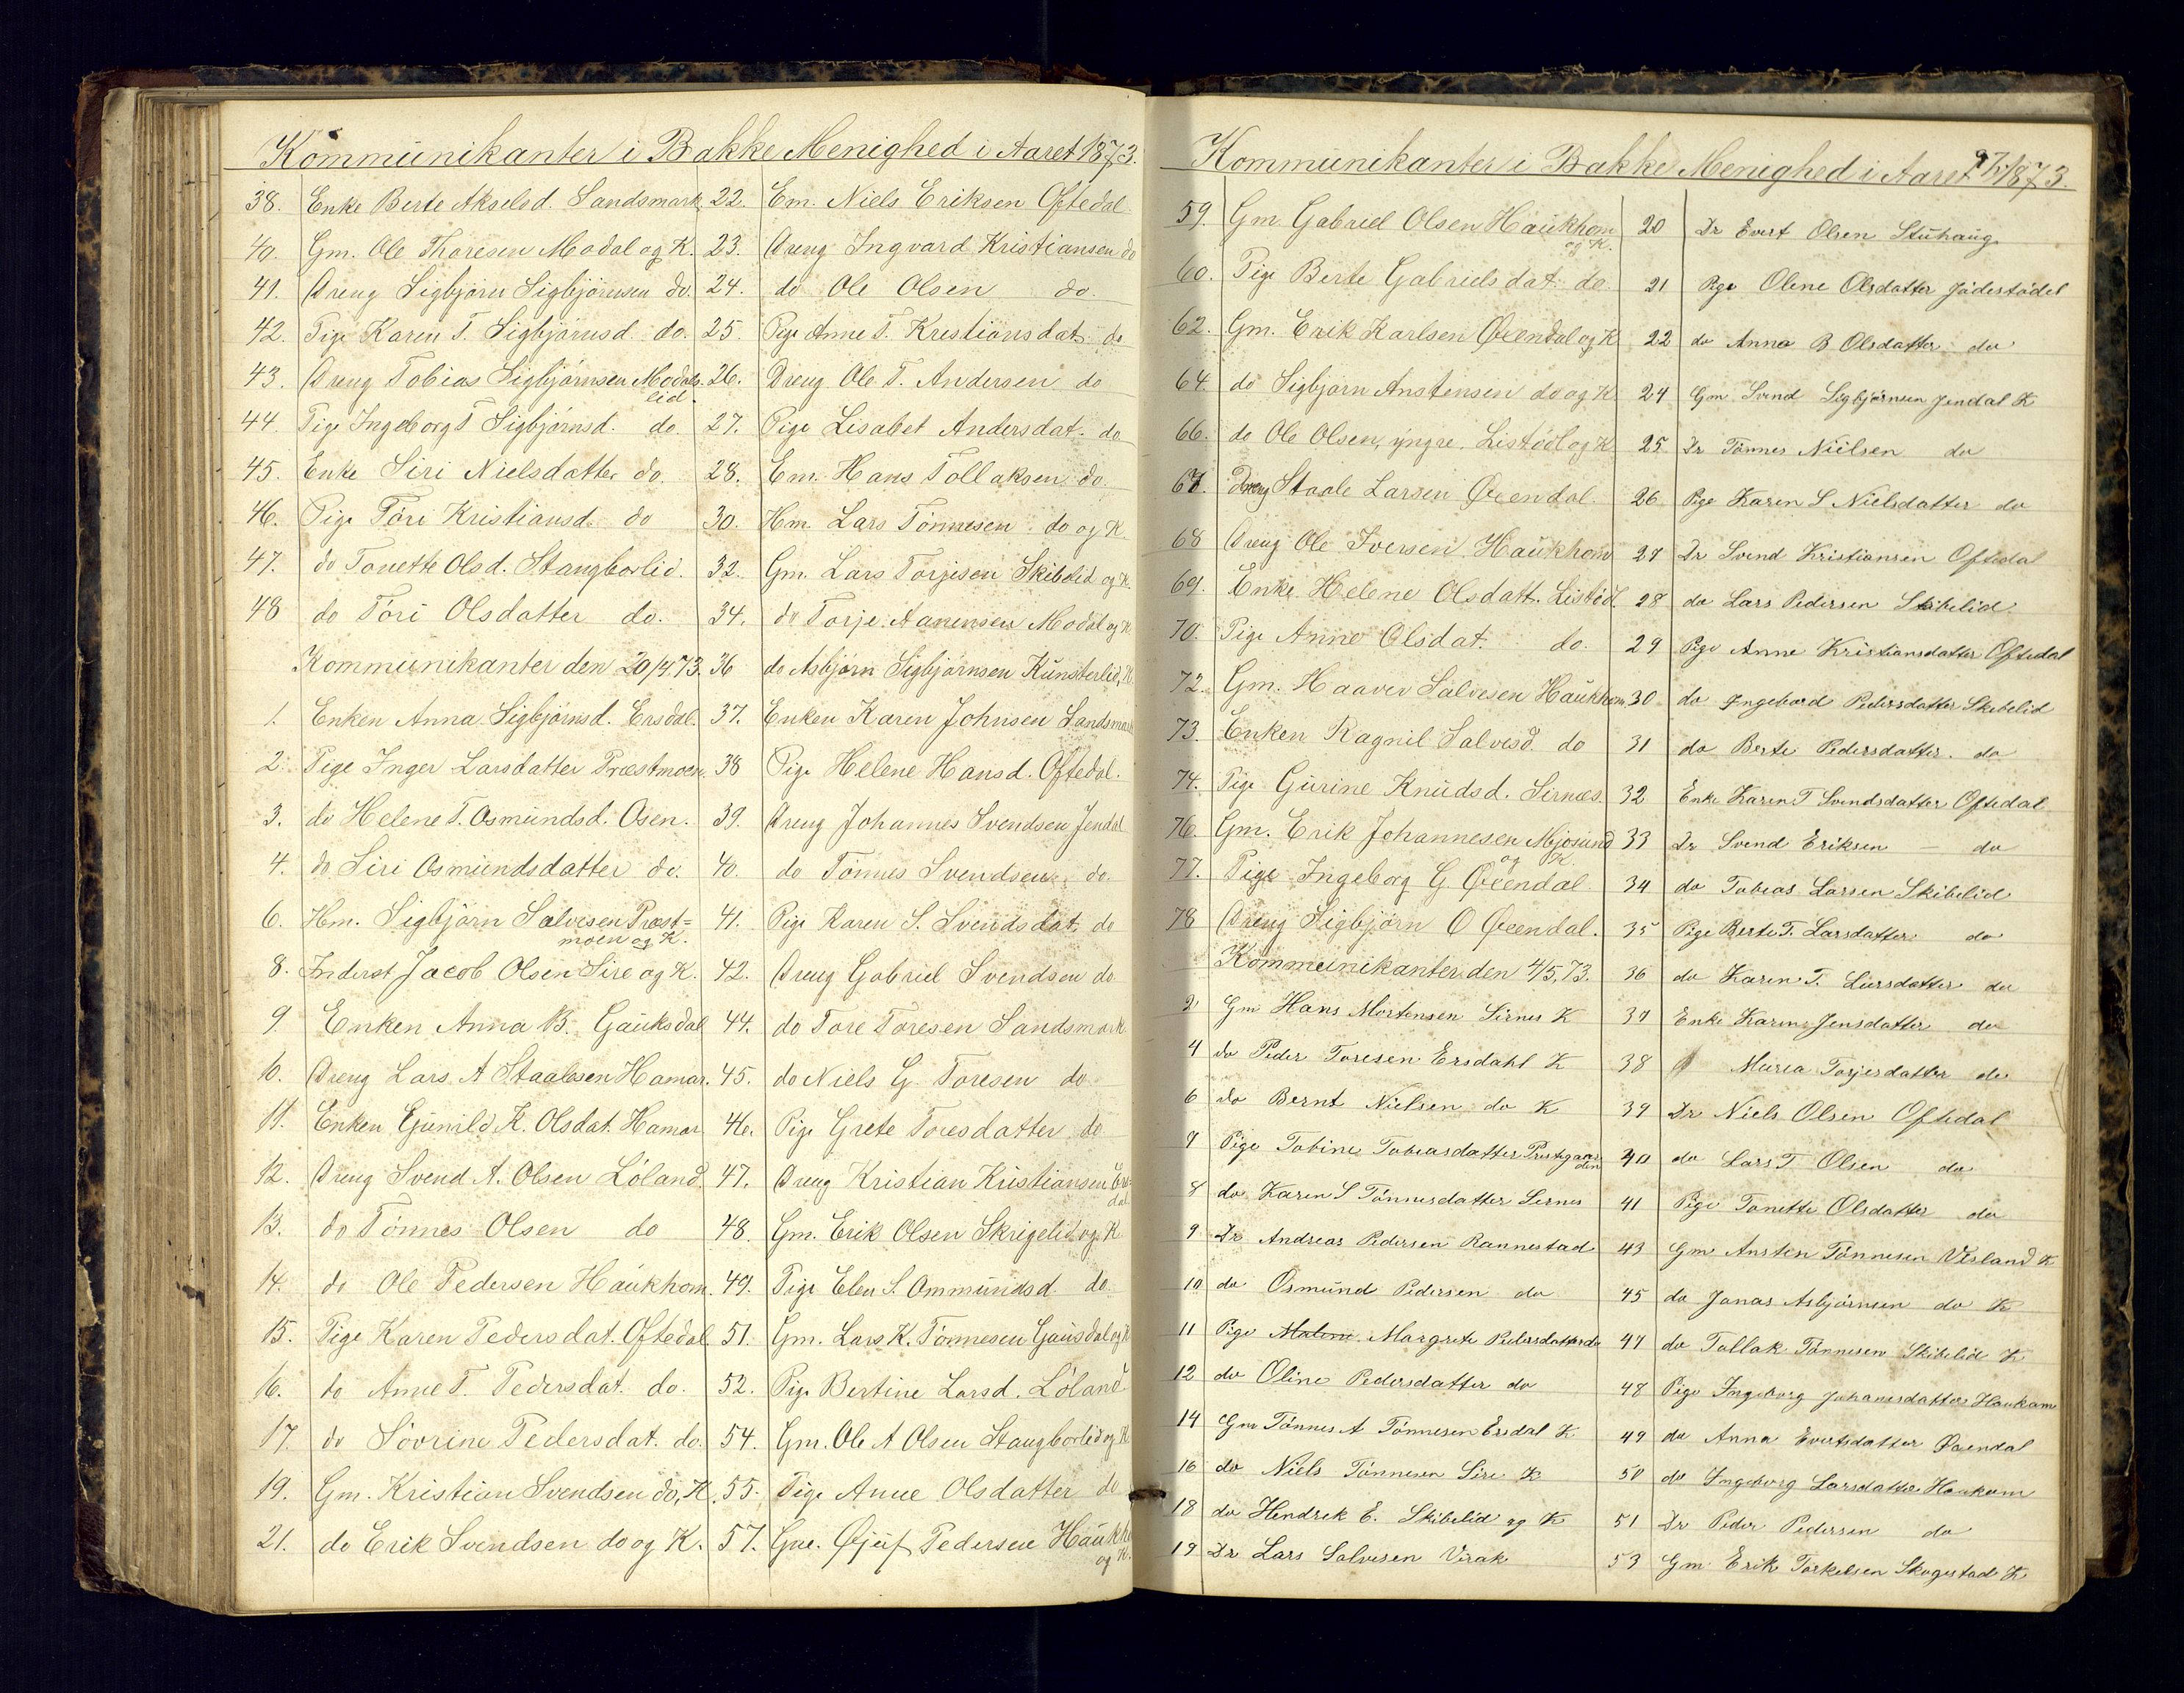 Kommunikanter i Bakke Menighed i Aaret 1873.
38. Enke Berte Akselsd. Landsmark
40. Gm. Ole Thoresen Modal og K.
41. Dreng Sigbjørn Sigbjørnsen do.
42. Pige Karen T. Sigbjørnsd. do.
43. Dreng Tobias Sigbjørnsen Modals-
lid.
44. Pige Ingeborg T Sigbjørnsd. do.
45. Enke Siri Nielsdatter do.
46. Pige Tóri Kristiansd. do
47. do Tonette Olsd. Stangborlid.
48 do Tóri Olsdatter do.
Kommunikanter den 20/4 73.
1. Enken Anna Sigbjørnsd. Ersdal.
2. Pige Inger Larsdatter Præstmoen.
3. do Helene T. Osmundsd. Osen.
4. do Siri Osmundsdatter do.
6. Hm. Sigbjørn Salvesen Præst=
moen og K.
8. Inderst Jacob Olsen Sire og K.
9 Enken Anna B. Gauksdal
10. Dreng Lars A Staalesen Hamar.
11. Enken Gunild K. Olsdat. Hamar
12. Dreng Svend A. Olsen Lóland.
13. do Tónnes Olsen do
14. do Ole Pedersen Haukhom.
15. Pige Karen Pedersdat. Oftedal
16. do Anne T. Pedersdat. do.
17. do Sóvrine Pedersdat. do.
19. Gm. Kristian Svendsen do, K.
21. do Erik Svendsen do og K.
22. Em. Niels Eriksen Oftedal.
23. Dreng Ingvard Kristiansen do
24. do Ole Olsen do.
25. Pige Anne T. Krestiansdat. do
26. Dreng Ole T. Andersen do
27. Pige Lisabet Andersdat. do
28. Em. Hans Tollaksen do.
30. Hm. Lars Tónnesen do og K.
32. Gm. Lars Torjesen Skibelid og K.
34. do Torje Aanensen Modal og K
36 do Asbjørn Sigbjørnsen Kunsterlid, K.
37. Enken Karen Johnsen Landsmark
38 Pige Helene Hansd. Oftedal.
39. Dreng Johannes Svendsen Jendal
40. do Tónnes Svendsen do.
41. Pige Karen S. Svendsdat. do
42. Dreng Gabriel Svendsen do
44. do Tore Toresen Landsmark
45. do Niels G. Toresen do
46. Pige Grete Toresdatter do
47. Dreng Kristian Kristiansen Ers-
dal
48. Gm. Erik Olsen Skrigelid og K
49. Pige Elen S. Ommundsd. do.
51. Gm. Lars K. Tónnesen Gausdal og K
52. Pige Bertine Larsd. Lóland
54. Gm. Ole A Olsen Stangborlid og K
55. Pige Anne Olsdatter do
57. Gm. Øjuf Pedersen Haukho
og K.
Kommunikanter i Bakke Menighed i Aaret 1873.
97.
59. Gm. Gabriel Olsen Haukhom
og K.
60. Pige Berte Gabrielsdat. do.
62. Gm. Erik Karlsen Øeendal og K
64. do Sigbjørn Anstensen do og K
66. do Ole Olsen, yngre, Listódl og K
67. Dreng Staale Larsen Øeendal.
68 Dreng Ole Iversen Haukhom
69. Enke Helene Olsdatt. Listódl.
70. Pige Anne Olsdat. do.
72. Gm. Haaver Salvesen Haukhom
73. Enken Ragnil Salvesd. do
74. Pige Gurine Knudsd. Sirnæs.
76. Gm. Erik Johannesen Mjosund
og K.
77. Pige Ingeborg G. Øeendal
78 Dreng Sigbjørn O Øeendal.
Kommunikanter den 4/5 73.
2 Gm Hans Mortensen Sirnes K
4 do Peder Toresen Ersdahl K
6 do Bernt Nielsen do K
7 Pige Tobine Tobiasdatter Prestgaar
den
8 do Karen S Tónnesdatter Sirnes
9 Dr Andreas Pedersen Rannestad
10 do Osmund Pedersen do
11 Pige Malene Margrete Pedersdatter do
12 do Oline Pedersdatter do
14 Gm Tónnes A Tónnesen Ersdal K
16 do Niels Tónnesen Sire K
18 do Hendrek E. Skibelid og K
19 Dr Lars Salvesen Virak
20 Dr Evert Olsen Stuhaug
21 Pige Olene Olsdatter Jódestódel
22 do Anna B Olsdatter do
24 Gm Svend Sigbjørnsen Jendal K
25 Dr Tónnes Nielsen do
26 Pige Karen S Nielsdatter do
27 Dr Svend Kristiansen Oftedal
28 do Lars Pedersen Skibelid.
29 Pige Anne Kristiansdatter Oftedal
30 do Ingebord Pedersdatter Skibelid
31 do Berte Pedersdatter. do
32 Enke Karen T Svendsdatter Oftedal
33 Dr Svend Eriksen do
34 do Tobias Larsen Skibelid
35 Pige Berte T. Larsdatter do
36 do Karen T. Larsdatter do
37 Enke Karen Jensdatter do
38 Maria Torjesdatter do
39 Dr Niels Olsen Oftedal
40 do Lars T. Olsen do
41 Pige Tonette Olsdatter do
43 Gm Ansten Tónnesen Virland K
45 do Jonas Asbjørnsen do K
47 do Tollak Tónnesen Skibelid K
48 Pige Ingeborg Johanesdatter Haukom
49 do Anna Evertsdatter Øeendal
50 do Ingeborg Larsdatter Haukom
51 Dr Peder Pedersen do
53 Gm Erik Torkelsen Skogestad K